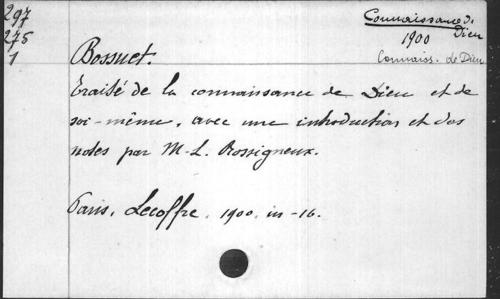 297
275
1
Connaissance de
Dieu
1900
Connais. de Dieu
Bossuet.
Traité de la connaissance de Dieu et de
soi-même, avec une introduction et des
notes par M-L. Rossigneux.
Paris, Lecoffre, 1900, in-16.